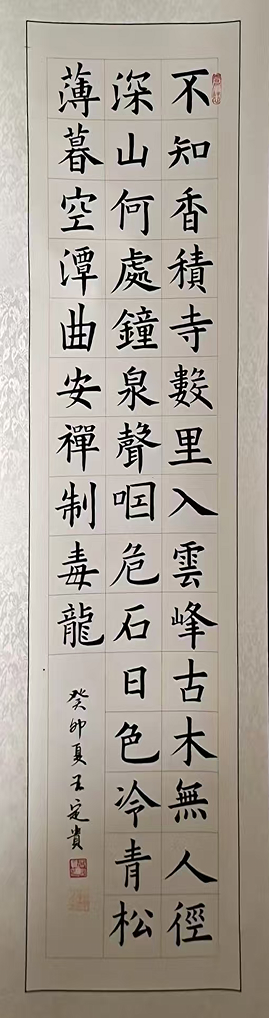 不知香積寺數里入雲峰古木無人徑
深山何處鐘泉聲咽危石日色冷青松
薄暮空潭曲安禪制毒龍
癸卯夏王定貴